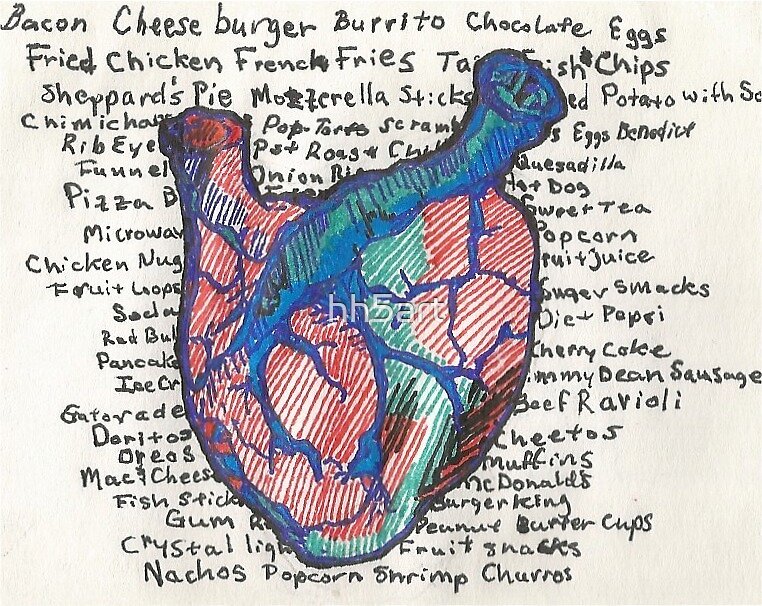 Bacon Cheese burger Burrito Chocolate Eggs
Fried Chicken French Fries Ta Fish Chips
Sheppard's Pie Mozzerella Sticks ed Potato with So
Chimichan Pop-Tarts Scramb s Eggs Benedict
Rib Eye Pot Roast Ch Quesadilla
Funnel Onion Ri Hot Dog
Pizza B Sweet Tea
Microwav Popcorn
Chicken Nug Fruit Juice
Fruit Loops Suger Smacks
Soda Diet Pepsi
hh5art
Red Bul Cherry Coke
Pancake immy Dean Sausage
Ice Cr Beef Ravioli
Gatorade
Doritos Cheetos
Oreos Muffins
Mac & Cheese McDonalds
Fish Stick Burger King
Gum Peanut Butter Cups
Crystal ligh Fruit Snacks
Nachos Popcorn Shrimp Churros